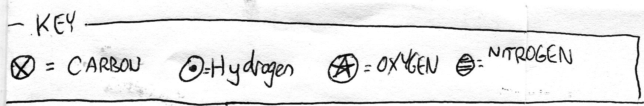 KEY
= CARBON =Hydrogen =OXYGEN =NITROGEN